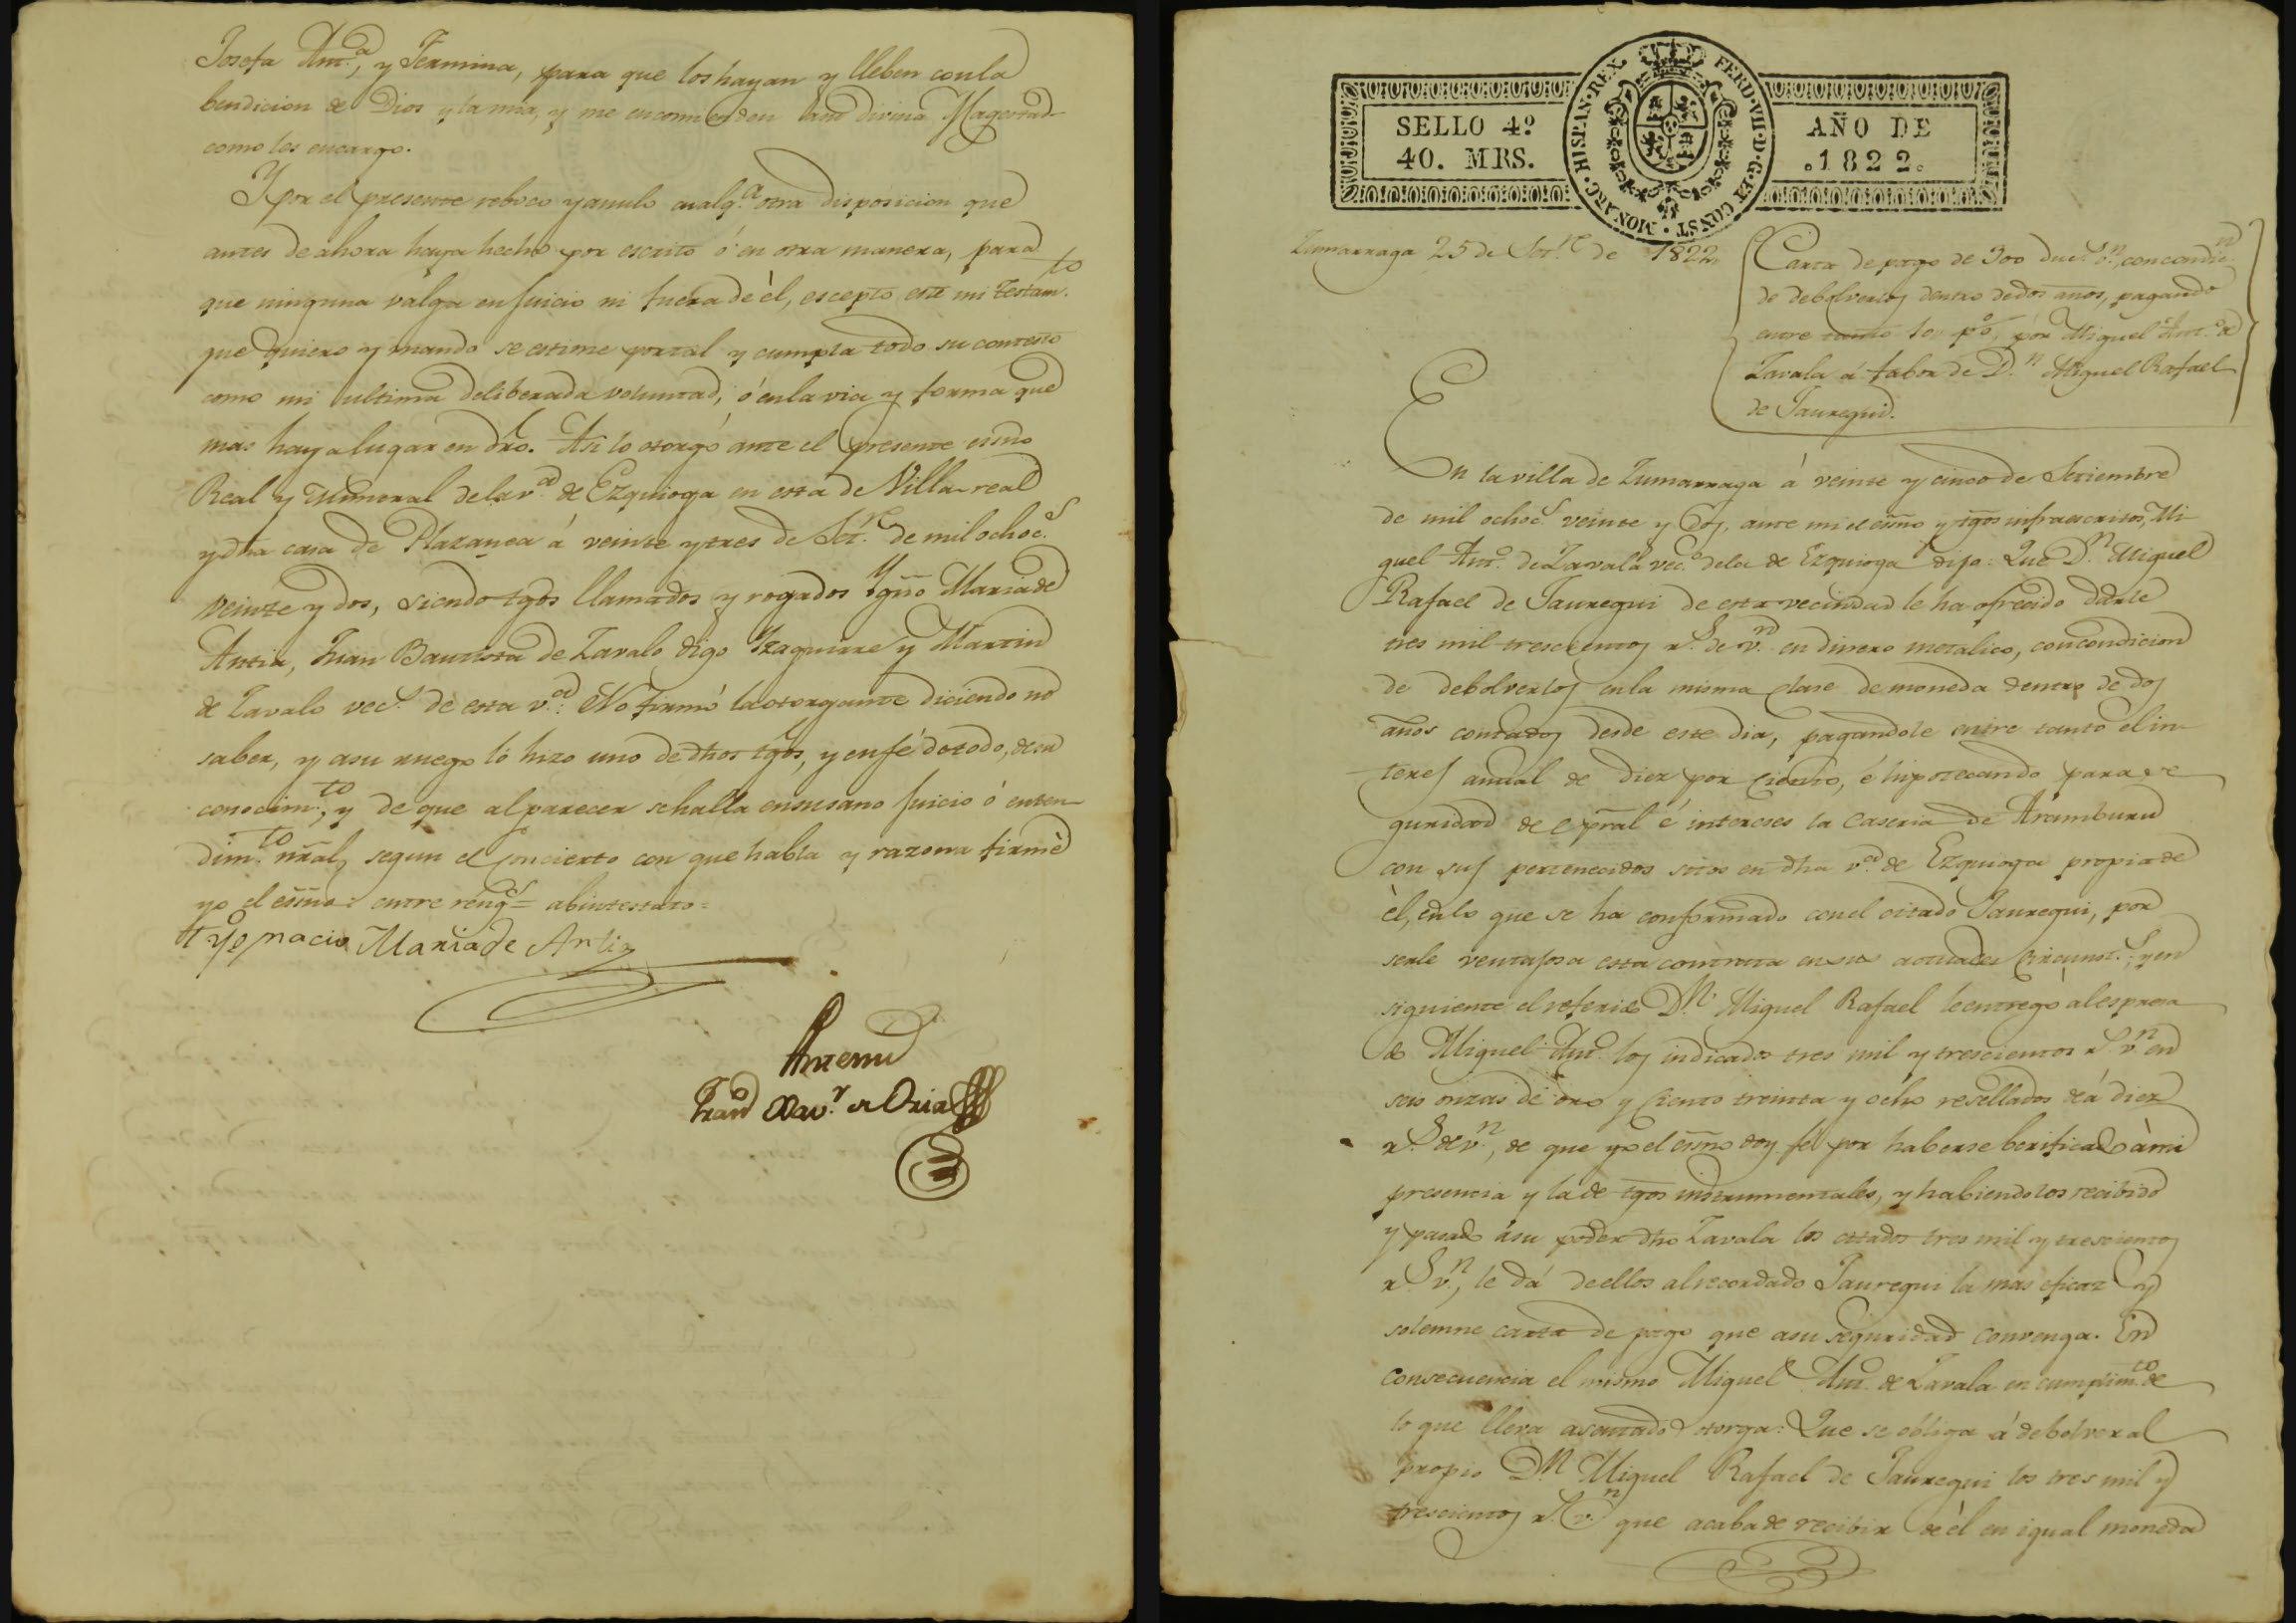 Josefa Ant.ª, y Fermina, para que los hayan y lleben con la
bendicion de Dios y la mia, y me encomienden a su divina Magestad
como les encargo.
Y por el presente reboco y anulo cualq.ª otra disposicion que
antes de ahora haya hecho por escrito ó en otra manera, para
que ninguna valga en juicio ni fuera de èl, escepto este mi Testam.to
que quiero y mando se estime por tal y cumpla todo su contesto
como mi ultima deliberada voluntad, ó en la via y forma que
mas haya lugar en dro. Asi lo otorgó ante el presente esño
Real y Numeral de la v.ª de Ezquioga en esta de Villa-real
y dha casa de Plazanea á veinte y tres de Set.re de mil ochoc.s
veinte y dos, siendo tgos llamados y rogados Ygño Maria de
Antia, Juan Bautista de Zavalo digo Yzaguirre y Martin
de Zavalo vec.s de esta v.ª: No firmó la otorgante diciendo no
saber, y a su ruego lo hizo uno de dhos tgos, y en fé de todo, de su
conocim.to, y de que al parecer se halla en su sano juicio ó enten-
dim.to nral, segun el concierto con que habla y razona firmé
yo el esño: entre reng.s = abintestato =
tgo Ygnacio Maria de Antia
Ante mi
Fran.co Xav.r de Oria
SELLO 4º
40. MRS.
MONARC · HISPAN · REX · FERD · VII · D · G · ET CONST ·
AÑO DE
.1822.
Zumarraga 25 de Set.re de 1822
Carta de pago de 300 duc.s v.n, con condic.n
de debolverlos dentro de dos años, pagando
entre tanto 10 p%, por Miguel Ant.º de
Zavala á fabor de D.n Miguel Rafael
de Jauregui.
En la villa de Zumarraga á veinte y cinco de Setiembre
de mil ochoc.s veinte y dos, ante mi el esño y tgos infraescritos, Mi-
guel Ant.º de Zavala vec.º de la de Ezquioga dijo: Que D.n Miguel
Rafael de Jauregui de esta vecindad le ha ofrecido darle
tres mil trescientos r.s de v.n en dinero metalico, con condicion
de debolverlos en la misma clase de moneda dentro de dos
años contados desde este dia, pagandole entre tanto el in-
teres anual de diez por ciento, é hipotecando para se-
guridad de cpral é intereses la Caseria de Aramburu
con sus pertenecidos sitos en dha v.ª de Ezquioga propia de
èl, en lo que se ha conformado con el citado Jauregui, por
serle ventajosa esta contrata en sus actuales circunst.s, y en
siguiente el referido D.n Miguel Rafael le entregó al espresa-
do Miguel Ant.º los indicados tres mil y trescientos r.s v.n en
seis onzas de oro y ciento treinta y ocho resellados de á diez
r.s de v.n, de que yo el esño doy fe por haberse berificado á mi
presencia y la de tgos instrumentales, y habiendolos recibido
y pasado á su poder dho Zavala los citados tres mil y trescientos
r.s v.n, le dá de ellos al recordado Jauregui la mas eficaz y
solemne carta de pago que a su seguridad convenga. En
consecuencia el mismo Miguel Ant.º de Zavala en cumplim.to de
lo que lleva asentado otorga: Que se obliga á debolver al
propio D.n Miguel Rafael de Jauregui los tres mil y
trescientos r.s v.n que acaba de recibir de èl en igual moneda